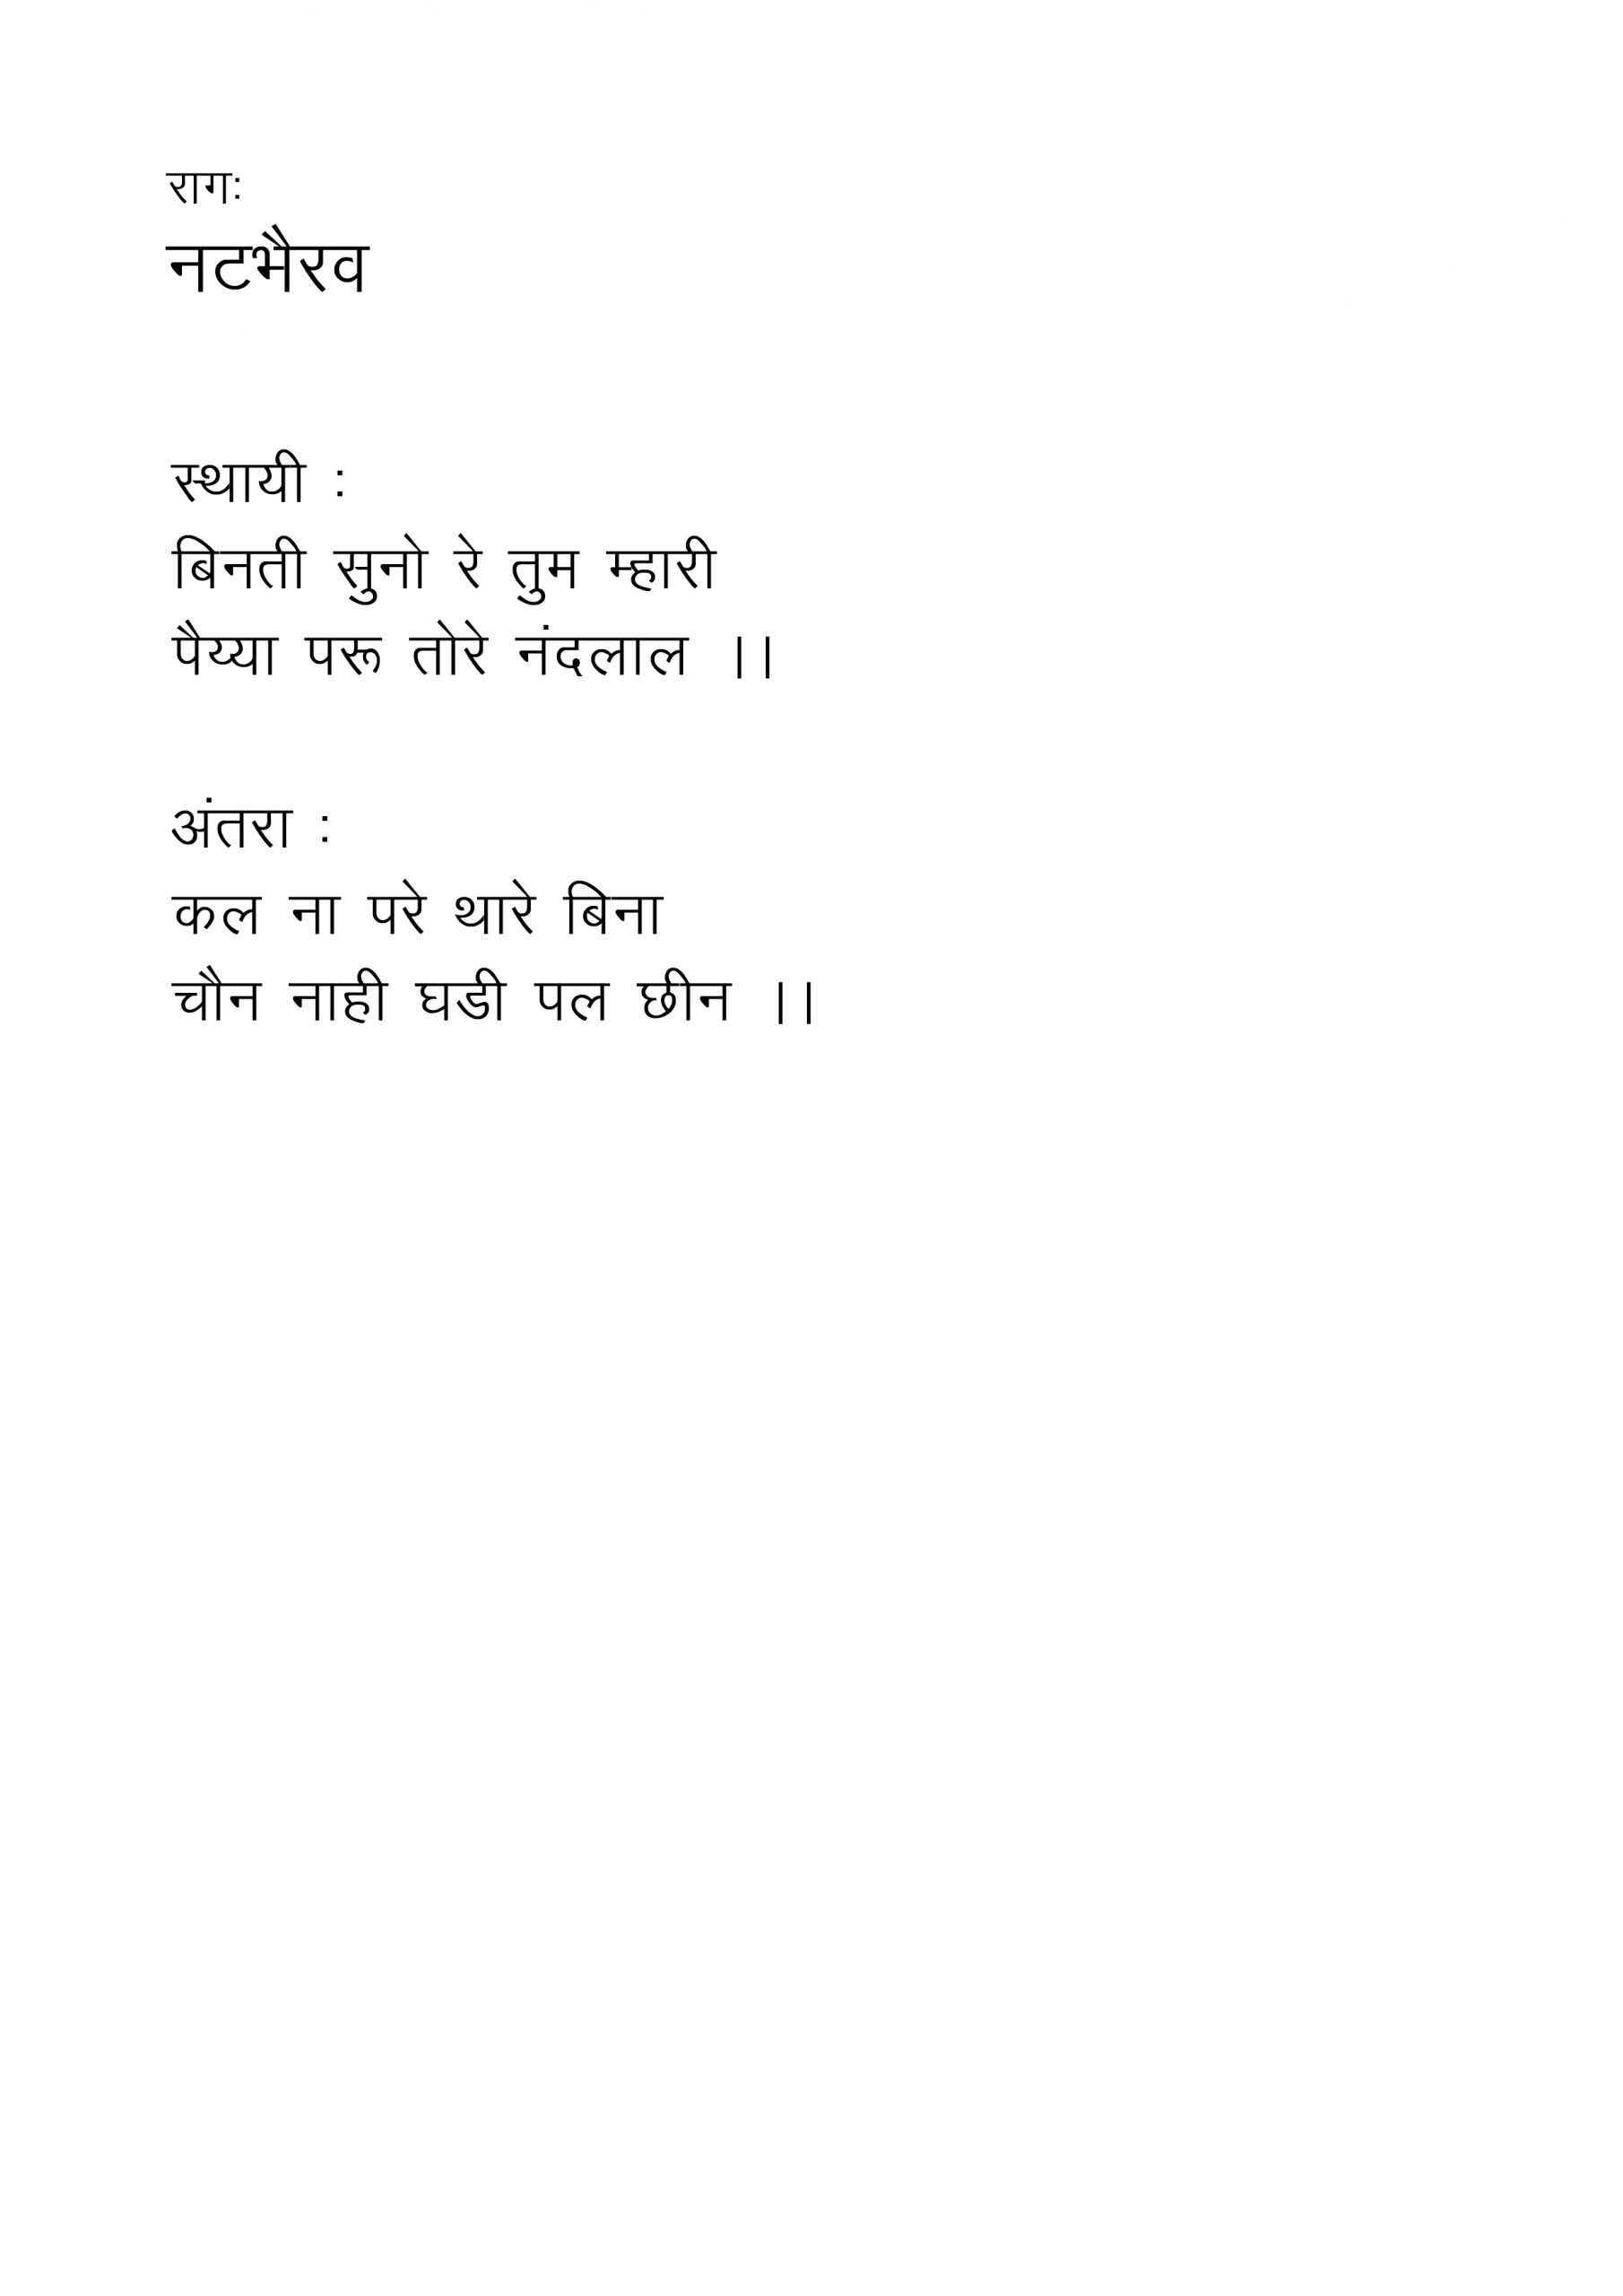 रागः
नटभैरव
स्थायी :
बिनती सुनो रे तुम म्हारी
पैय्या परू तोरे नंदलाल ||
अंतरा :
कल ना परे थारे बिना
चौन नाही घडी पल छीन ||